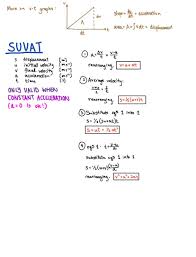 More on v-t graphs:
slope = Δv/Δt = acceleration
area = Δs = displacement
SUVAT
s displacement (m)
u initial velocity (ms⁻¹)
v final velocity (ms⁻¹)
a acceleration (ms⁻²)
t time (s)
ONLY VALID WHEN
CONSTANT ACCELERATION
(a=0 is ok!)
① a = Δv/Δt = (v-u)/t
rearranging v = u + at
② Average velocity
= (v+u)/2
rearranging s = ½(u+v)t
③ Substitute eqn 1 into 2
s = ½(u+u+at)t
s = ut + ½at²
④ eqn 1: t = (v-u)/a
Substitute eqn 1 into 2
rearranging v² = u² + 2as